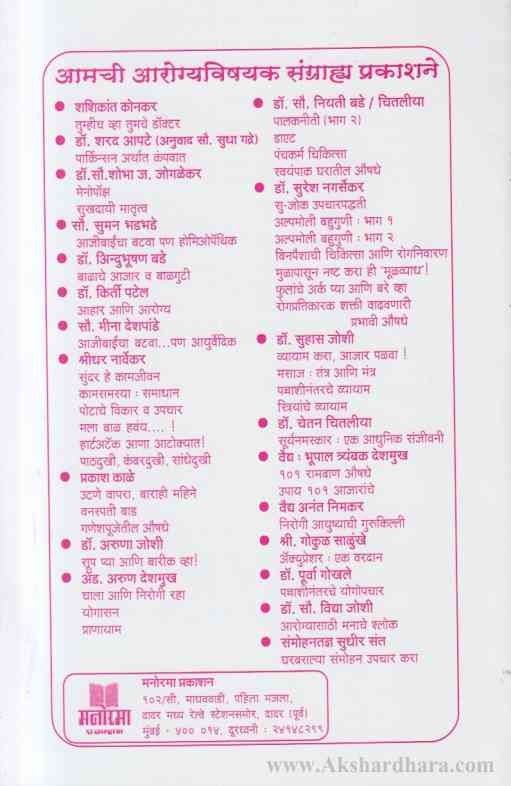 आमची आरोग्यविषयक संग्राह्य प्रकाशने
● शशिकांत कोनकर
तुम्हीच व्हा तुमचे डॉक्टर
● डॉ. शरद आपटे (अनुवाद सौ. सुधा गद्रे)
पार्किन्सन अर्थात कंपवात
● डॉ.सौ.शोभा ज. जोगळेकर
मेनोपॉझ
सुखदायी मातृत्व
● सौ. सुमन भडभडे
आजीबाईंचा बटवा पण होमिओपॅथिक
● डॉ. अिन्दुभूषण बडे
बाळाचे आजार व बाळगुटी
● डॉ. किर्ती पटेल
आहार आणि आरोग्य
● सौ. मीना देशपांडे
आजीबाईंचा बटवा...पण आयुर्वेदिक
● श्रीधर नार्वेकर
सुंदर हे कामजीवन
कामसमस्या : समाधान
पोटाचे विकार व उपचार
मला बाळ हवंय.... !
हार्टअटॅक आणा आटोक्यात!
पाठदुखी, कंबरदुखी, सांधेदुखी
● प्रकाश काळे
उटणे वापरा, बाराही महिने
वनस्पती बाड
गणेशपूजेतील औषधे
● डॉ. अरुणा जोशी
सूप प्या आणि बारीक व्हा!
● ॲड. अरुण देशमुख
चाला आणि निरोगी रहा
योगासन
प्राणायाम
● डॉ. सौ. नियती बडे / चितलीया
पालकनीती (भाग २)
डाएट
पंचकर्म चिकित्सा
स्वयंपाक घरातील औषधे
● डॉ. सुरेश नगर्सेकर
सु-जोक उपचारपद्धती
अल्पमोली बहुगुणी : भाग १
अल्पमोली बहुगुणी : भाग २
बिनपैशाची चिकित्सा आणि रोगनिवारण
मुळापासून नष्ट करा ही 'मूळव्याध'!
फुलांचे अर्क प्या आणि बरे व्हा
रोगप्रतिकारक शक्ती वाढवणारी
प्रभावी औषधे
● डॉ. सुहास जोशी
व्यायाम करा, आजार पळवा !
मसाज : तंत्र आणि मंत्र
पन्नाशीनंतरचे व्यायाम
स्त्रियांचे व्यायाम
● डॉ. चेतन चितलीया
सूर्यनमस्कार : एक आधुनिक संजीवनी
● वैद्य : भूपाल त्र्यंबक देशमुख
१०१ रामबाण औषधे
उपाय १०१ आजारांचे
● वैद्य अनंत निमकर
निरोगी आयुष्याची गुरुकिल्ली
● श्री. गोकुळ साळुंखे
ॲक्युप्रेशर : एक वरदान
● डॉ. पूर्वा गोखले
पन्नाशीनंतरचे योगोपचार
● डॉ. सौ. विद्या जोशी
आरोग्यासाठी मनाचे श्लोक
● संमोहनतज्ञ सुधीर संत
घरबसल्या संमोहन उपचार करा
मनोरमा
प्रकाशन
मनोरमा प्रकाशन
१०२/सी, माधववाडी, पहिला मजला,
दादर मध्य रेल्वे स्टेशनसमोर, दादर (पूर्व)
मुंबई - ४०० ०१४. दूरध्वनी : २४१४८२९९
www.Akshardhara.com